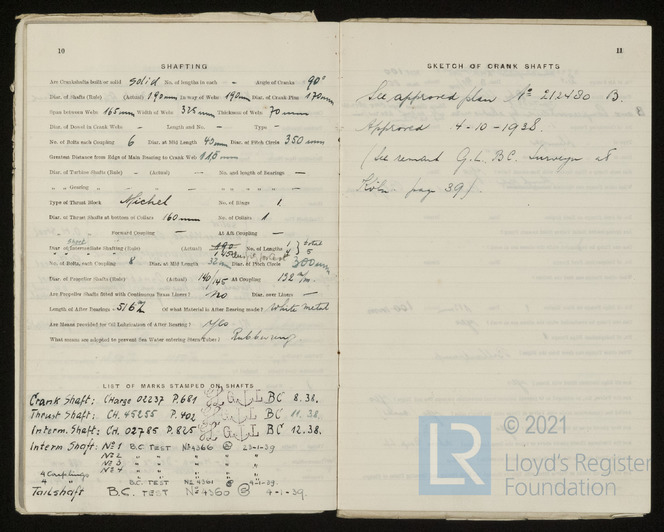 10
SHAFTING
Are Crankshafts built or solid solid No. of lengths in each - Angle of Cranks 90°
Diar. of Shafts (Rule) (Actual) 190mm In way of Webs 190mm Diar. of Crank Pins 170mm
Span between Webs 165mm Width of Webs 325mm Thickness of Webs 70mm
Diar. of Dowel in Crank Webs - Length and No. - Type -
No. of Bolts each Coupling 6 Diar. at Mid Length 40mm Diar. of Pitch Circle 350mm
Greatest Distance from Edge of Main Bearing to Crank Web 115mm
Diar. of Turbine Shafts (Rule) - (Actual) - No. and length of Bearings -
" " Gearing " - " - " " " -
Type of Thrust Block Michel No. of Rings 1
Diar. of Thrust Shafts at bottom of Collars 160mm No. of Collars 1
Forward Coupling - At Aft Coupling -
Diar. of Intermediate Shafting (Rule) (Actual) No. of Lengths 1 total 5
No. of Bolts, each Coupling 8 Diar. at Mid Length Diar. of Pitch Circle 300mm
Diar. of Propeller Shafts (Rule) (Actual) 140/145 At Coupling 132 m/m
Are Propeller Shafts fitted with Continuous Brass Liners? no Diar. over Liners -
Length of After Bearings 5162 Of what Material is After Bearing made? White metal
Are Means provided for Oil Lubrication of After Bearing? yes
What means are adopted to prevent Sea Water entering Stern Tubes? Rubberring
LIST OF MARKS STAMPED ON SHAFTS
Crank Shaft: CHarge 02237 P.681 BC 8.38.
Thrust Shaft: CH. 45255 P.402 BC 11.38.
Interm. Shaft: CH. 02785 P.825 BC 12.38.
Interm Shaft: No 1 B.C. TEST No 4366 23-1-39
No 2 " " " "
No 3 " " " "
No 4 " " " "
4 Couplings B.C. TEST No 4361 4-1-39.
Tailshaft B.C. TEST No 4360 4-1-39.
11
SKETCH OF CRANK SHAFTS
See approved plan No 212480 B.
Approved 4-10-1938.
(See remark G.L. BC. Surveyor at
Köln page 39)
© 2021
LR
Lloyd's Register
Foundation